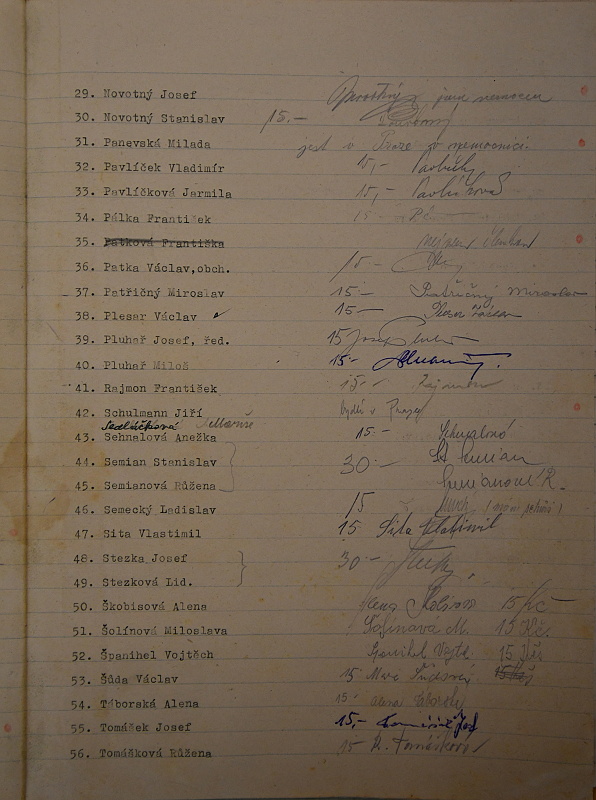 29. Novotný Josef nemocen
30. Novotný Stanislav 15.-
31. Panevská Milada jest v Praze v nemocnici.
32. Pavlíček Vladimír 15,-
33. Pavlíčková Jarmila 15,-
34. Pálka František 15 -
35. Patková Františka
36. Patka Václav,obch. 15.-
37. Patřičný Miroslav 15.- Patřičný Miroslav
38. Plesar Václav 15.- Plesar Václav
39. Pluhař Josef, řed. 15 Josef
40. Pluhař Miloš 15.-
41. Rajmon František 15.- Rajmon
42. Schulmann Jiří bydlí v Praze
Sedláčková
43. Sehnalová Anežka 15.- Sehnalová
44. Semian Stanislav 30.- St Semian
45. Semianová Růžena Semianová R.
46. Semecký Ladislav 15
47. Sita Vlastimil 15 Sita Vlastimil
48. Stezka Josef 30.-
49. Stezková Lid.
50. Škobisová Alena Alena 15 Kč
51. Šolínová Miloslava Šolínová M. 15 Kč.
52. Španihel Vojtěch Španihel Vojtě. 15 Kčs
53. Šůda Václav 15
54. Táborská Alena 15.- Alena Táborská
55. Tomášek Josef 15,- Tomášek Jos
56. Tomášková Růžena 15 R. Tomášková